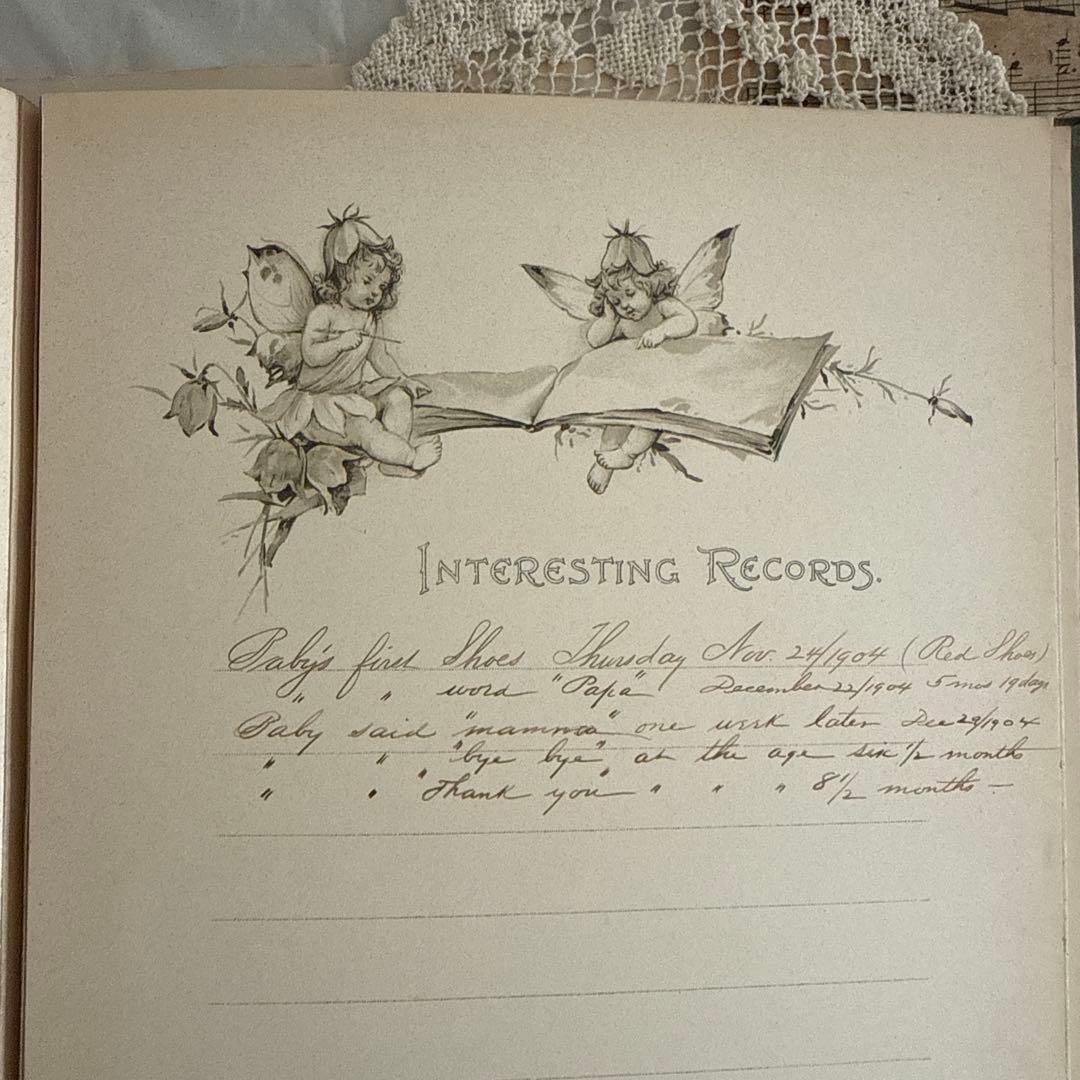 INTERESTING RECORDS.
Baby's first Shoes Thursday Nov. 24/1904 (Red Shoes)
" " word "Papa" December 22/1904 5 mos 19 days
Baby said "mamma" one week later Dec 29/1904
" " "bye bye" at the age six 1/2 months
" " "Thank you" " " " 8 1/2 months –